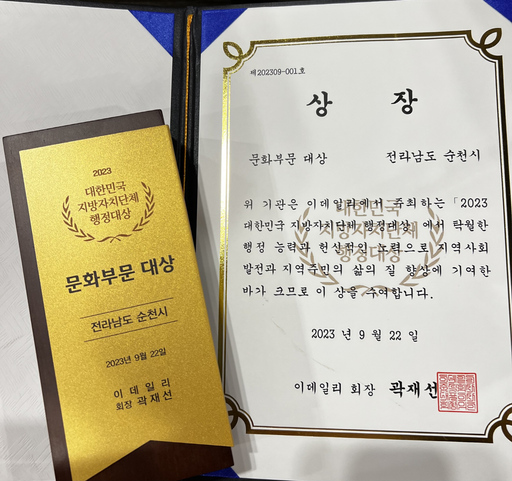 2023
대한민국
지방자치단체
행정대상
문화부문 대상
전라남도 순천시
2023년 9월 22일
이데일리
회장 곽재선
제202309-001호
상 장
문화부문 대상 전라남도 순천시
위 기관은 이데일리에서 주최하는 「2023
대한민국 지방자치단체 행정대상」에서 탁월한
행정 능력과 헌신적인 노력으로 지역사회
발전과 지역주민의 삶의 질 향상에 기여한
바가 크므로 이 상을 수여합니다.
대한민국
지방자치단체
행정대상
2023 년 9 월 22 일
이데일리 회장 곽재선